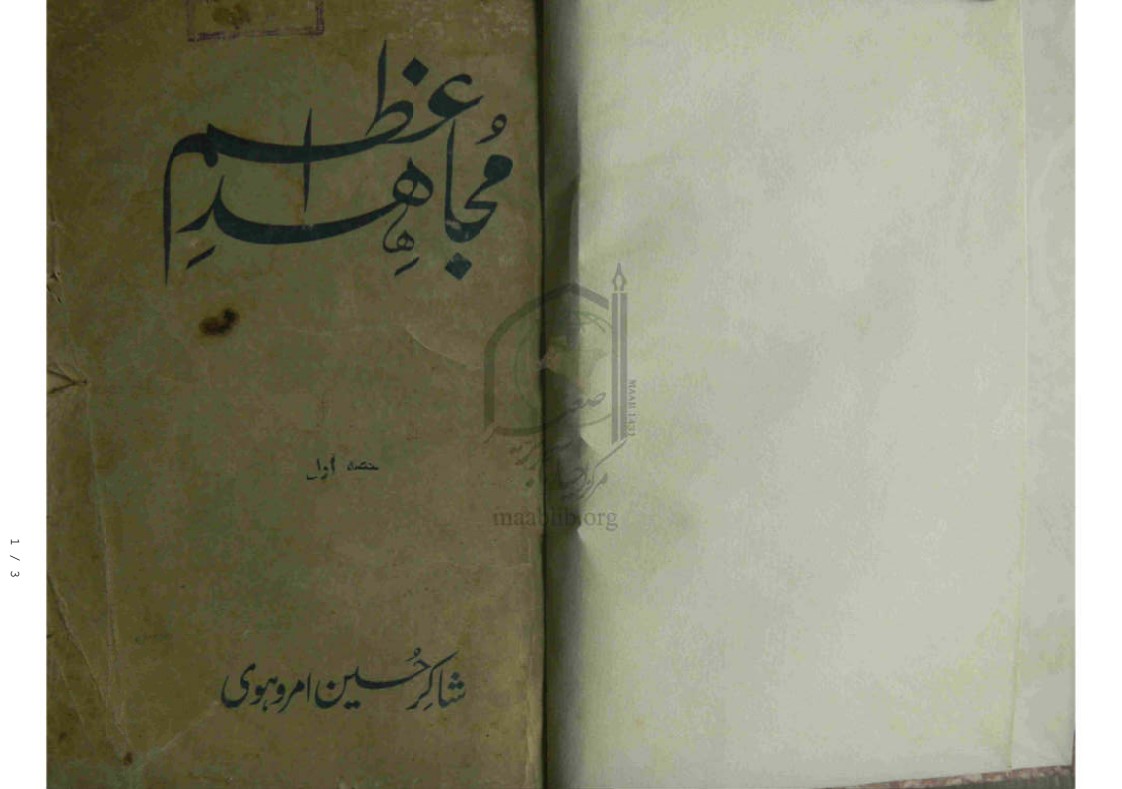 مُجاہِدِ اعظم
حصہ اول
شاکِر حُسین امروہوی
maablib.org
MAAB 1431
1 / 3